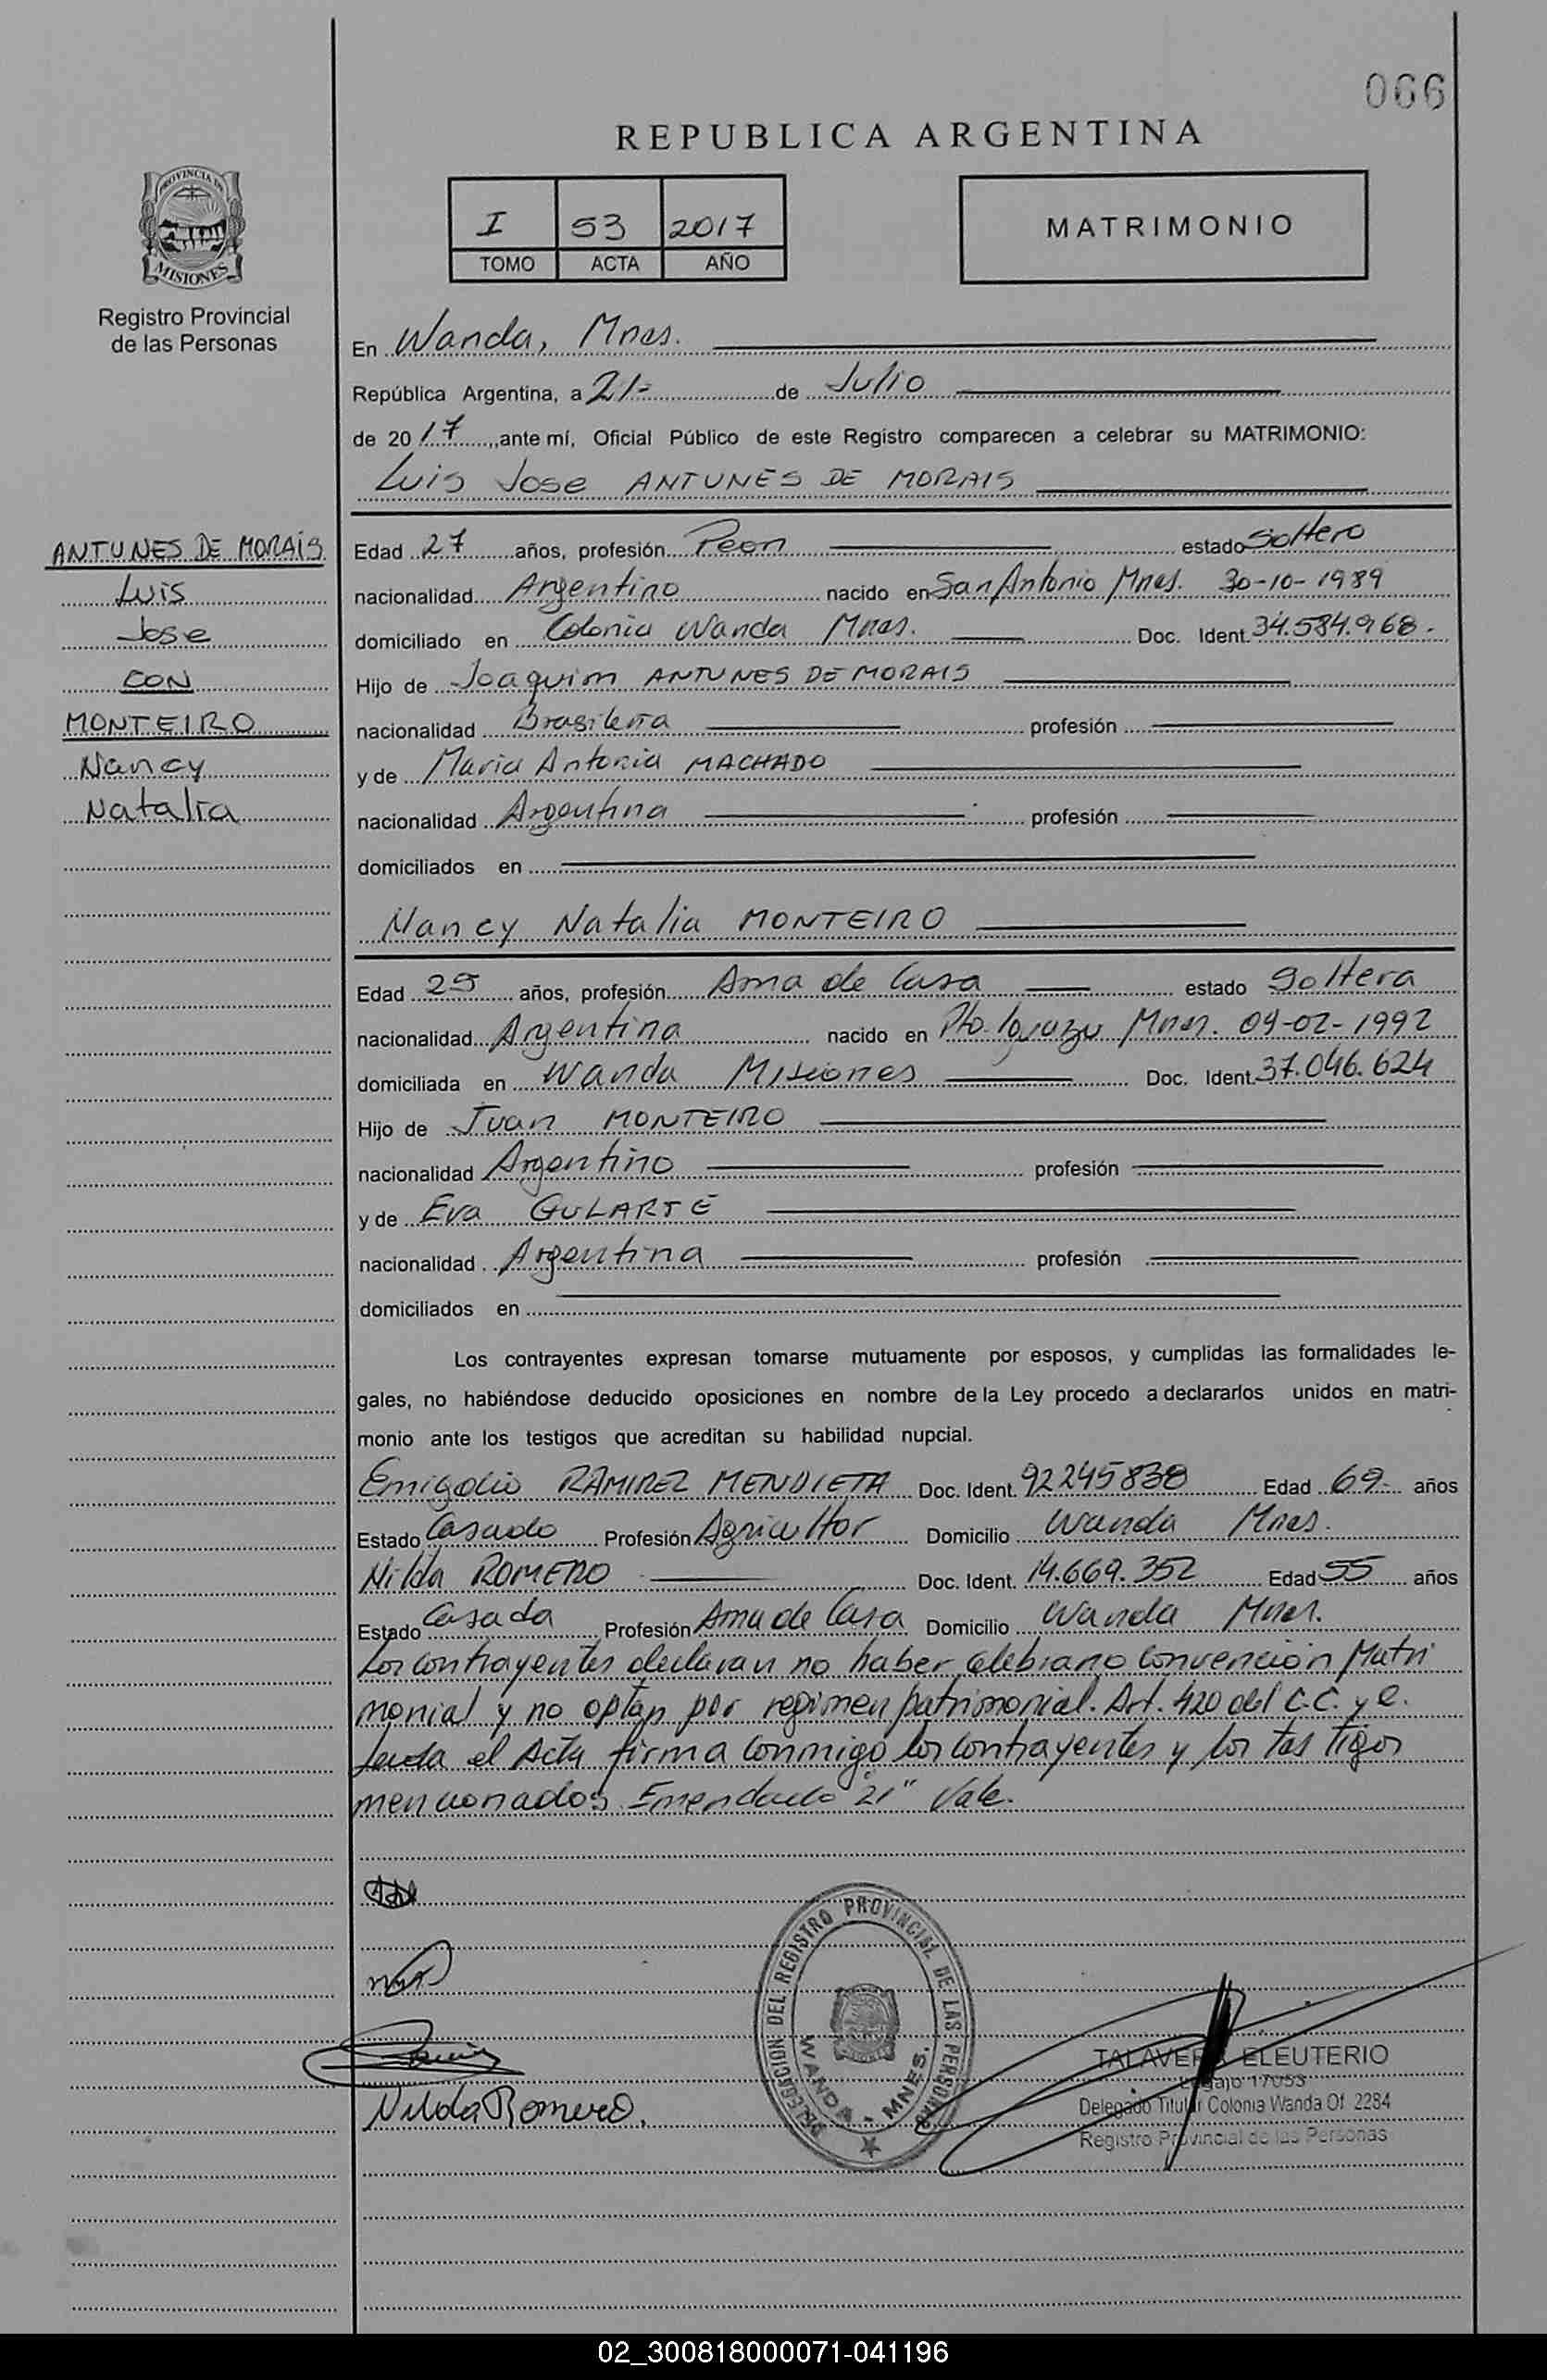 066
REPUBLICA ARGENTINA
PROVINCIA DE
MISIONES
Registro Provincial
de las Personas
I 53 2017
TOMO ACTA AÑO
MATRIMONIO
En Wanda, Mnes.
República Argentina, a 21- de Julio
de 20 17, ante mí, Oficial Público de este Registro comparecen a celebrar su MATRIMONIO:
Luis Jose ANTUNES DE MORAIS
ANTUNES DE MORAIS
Luis
Jose
CON
MONTEIRO
Nancy
Natalia
Edad 27 años, profesión Peon estado Soltero
nacionalidad Argentino nacido en San Antonio Mnes. 30-10-1989
domiciliado en Colonia Wanda Mnes. Doc. Ident. 34.584.968.-
Hijo de Joaquim ANTUNES DE MORAIS
nacionalidad Brasilera profesión
y de Maria Antonia MACHADO
nacionalidad Argentina profesión
domiciliados en
Nancy Natalia MONTEIRO
Edad 25 años, profesión Ama de Casa estado Soltera
nacionalidad Argentina nacido en Pto. Iguazu Mnes. 09-02-1992
domiciliada en Wanda Misiones Doc. Ident. 37.046.624
Hijo de Juan MONTEIRO
nacionalidad Argentino profesión
y de Eva GULARTE
nacionalidad Argentina profesión
domiciliados en
Los contrayentes expresan tomarse mutuamente por esposos, y cumplidas las formalidades le-
gales, no habiéndose deducido oposiciones en nombre de la Ley procedo a declararlos unidos en matri-
monio ante los testigos que acreditan su habilidad nupcial.
Emigdio RAMIREZ MENDIETA Doc. Ident. 92245838 Edad 69- años
Estado Casado Profesión Agricultor Domicilio Wanda Mnes.
Nilda ROMERO Doc. Ident. 14.669.352 Edad 55 años
Estado Casada Profesión Ama de Casa Domicilio Wanda Mnes.
Los contrayentes declaran no haber celebrano Convención Matri
monial y no optan por regimen patrimonial. Art. 420 del C.C. y C.
Leida el Acta firma conmigo los contrayentes y los testigos
mencionados. Emendado "21" Vale.
DELEGACION DEL REGISTRO PROVINCIAL DE LAS PERSONAS
WANDA - MNES.
Nilda Romero.
TALAVERA ELEUTERIO
Legajo 17053
Delegado Titular Colonia Wanda Of. 2284
Registro Provincial de las Personas
02_300818000071-041196